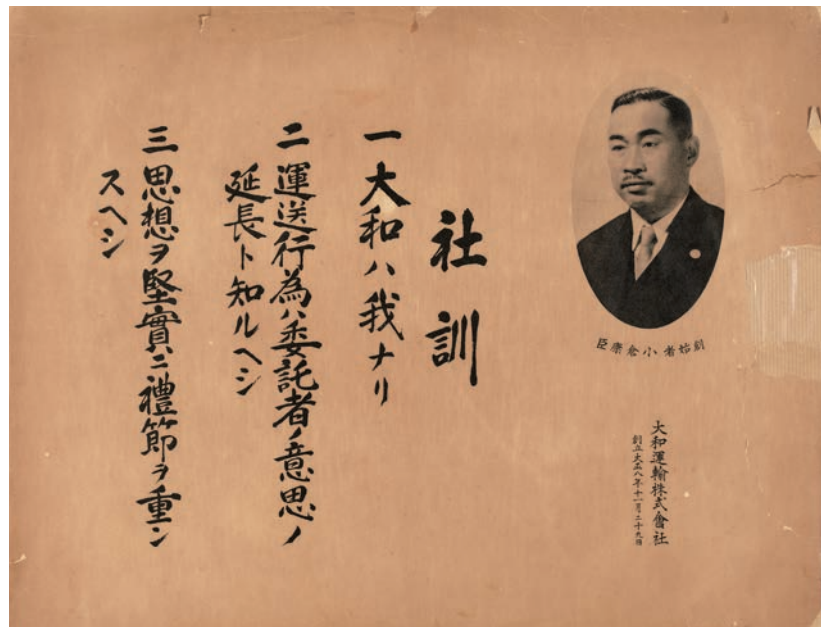 創始者小倉康臣
大和運輸株式會社
創立大正八年十一月二十九日
社訓
一大和ハ我ナリ
二運送行為ハ委託者ノ意思ノ
延長ト知ルヘシ
三思想ヲ堅實ニ禮節ヲ重ン
スヘシ